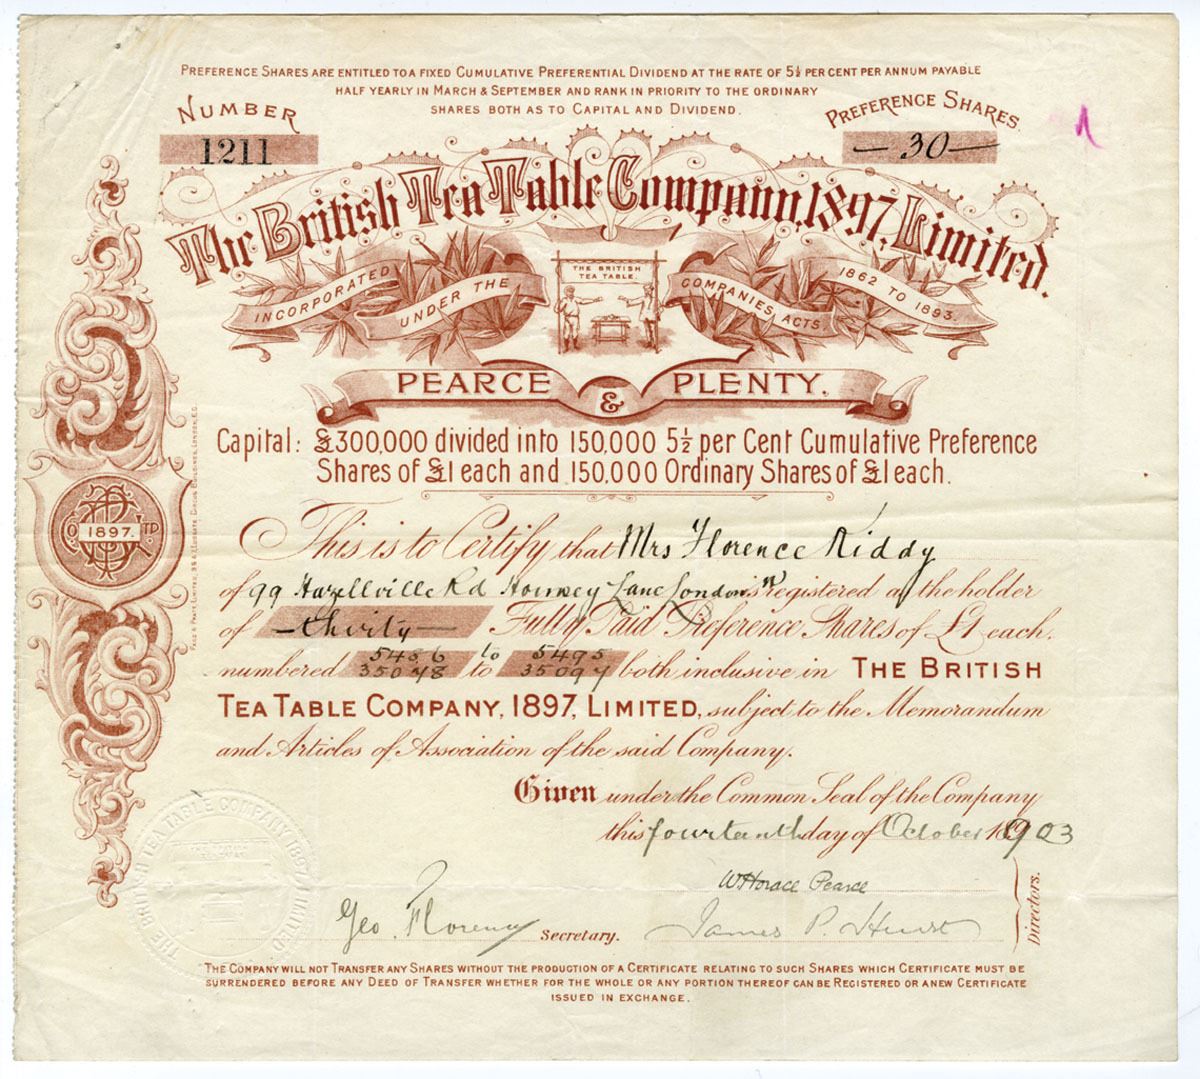 PREFERENCE SHARES ARE ENTITLED TO A FIXED CUMULATIVE PREFERENTIAL DIVIDEND AT THE RATE OF 5½ PER CENT PER ANNUM PAYABLE
HALF YEARLY IN MARCH & SEPTEMBER AND RANK IN PRIORITY TO THE ORDINARY
SHARES BOTH AS TO CAPITAL AND DIVIDEND.
NUMBER
1211
PREFERENCE SHARES.
— 30 —
The British Tea Table Company, 1897, Limited.
INCORPORATED UNDER THE COMPANIES, ACTS 1862 TO 1893.
THE BRITISH
TEA TABLE.
PEARCE & PLENTY.
Capital: £300,000 divided into 150,000 5½ per Cent Cumulative Preference
Shares of £1 each and 150,000 Ordinary Shares of £1 each.
CO 1897. LTD.
This is to Certify that Mrs Florence Kiddy
of 99 Hazellville Rd Hornsey Lane London N is registered as the holder
of — thirty — Fully Paid Preference Shares of £1 each,
numbered 5486 to 5495
35078 to 35097 both inclusive in THE BRITISH
TEA TABLE COMPANY, 1897, LIMITED, subject to the Memorandum
and Articles of Association of the said Company.
Given under the Common Seal of the Company
this fourteenth day of October 1903
W Horace Pearce
Geo. Florency Secretary. James P. Hurst
Directors.
THE BRITISH TEA TABLE COMPANY 1897 LIMITED
THE COMPANY WILL NOT TRANSFER ANY SHARES WITHOUT THE PRODUCTION OF A CERTIFICATE RELATING TO SUCH SHARES WHICH CERTIFICATE MUST BE
SURRENDERED BEFORE ANY DEED OF TRANSFER WHETHER FOR THE WHOLE OR ANY PORTION THEREOF CAN BE REGISTERED OR A NEW CERTIFICATE
ISSUED IN EXCHANGE.